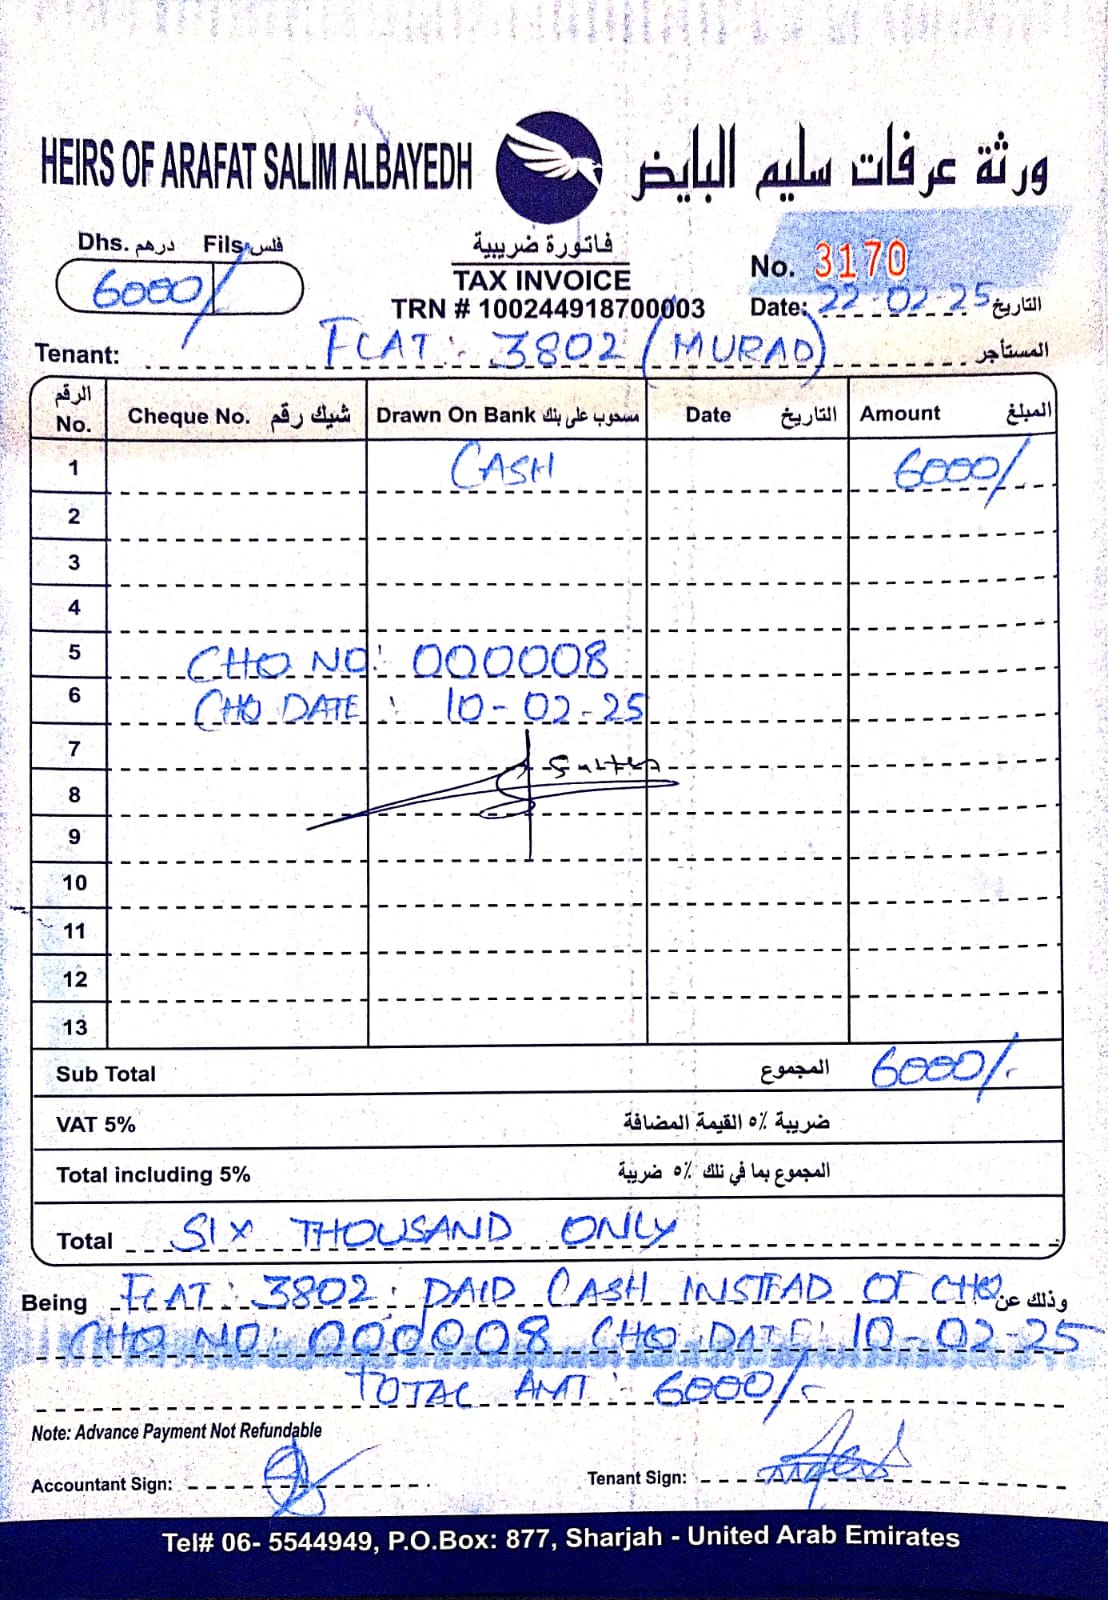 HEIRS OF ARAFAT SALIM ALBAYEDH ورثة عرفات سليم البايض
Dhs. درهم Fils. فلس
6000/
فاتورة ضريبية
TAX INVOICE
TRN # 100244918700003
No. 3170
Date: 22-02-25 التاريخ
Tenant: FLAT: 3802 (MURAD) المستأجر
الرقم No. Cheque No. شيك رقم Drawn On Bank مسحوب على بنك Date التاريخ Amount المبلغ
1 CASH 6000/
2
3
4
5 CHQ NO: 000008
6 CHQ DATE: 10-02-25
7
8
9
10
11
12
13
Sub Total المجموع 6000/-
VAT 5% ضريبة ٥٪ القيمة المضافة
Total including 5% المجموع بما في ذلك ٥٪ ضريبة
Total SIX THOUSAND ONLY
Being FLAT: 3802. PAID CASH INSTEAD OF CHQ وذلك عن
CHQ NO: 000008 CHQ DATE: 10-02-25
TOTAL AMT: 6000/-
Note: Advance Payment Not Refundable
Accountant Sign: Tenant Sign:
Tel# 06- 5544949, P.O.Box: 877, Sharjah - United Arab Emirates